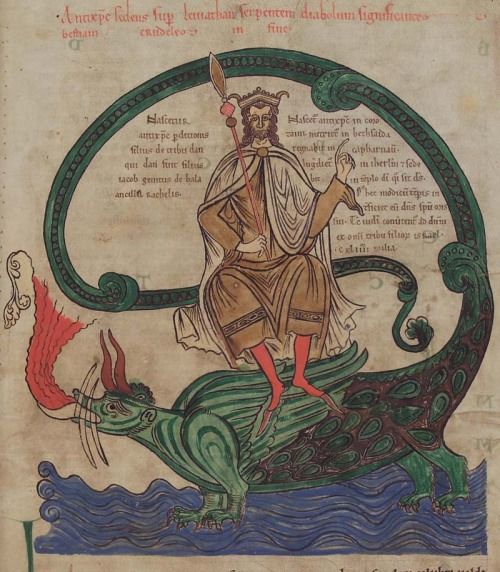 Antixpc sedens sup leviathan serpentem diabolum significantes
bestiam crudele in fine
Nascetur
antixpc pditionis
filius de tribu dan
qui dan fuit filius
iacob genitus de bala
ancilla rachelis.
Nascet antixpc in coro
zaim nutriet in bethsaida
regnabit in capharnaū
Ingdiet in ihrlm & sede
bit in tēplo di qͥ sit ds.
P hec modicū tēpis in
tficiet eū dns spu oris
sui. Tc iudi ad dnm
ex omi tribu filior isrl̄ael.
c xl iiii milia